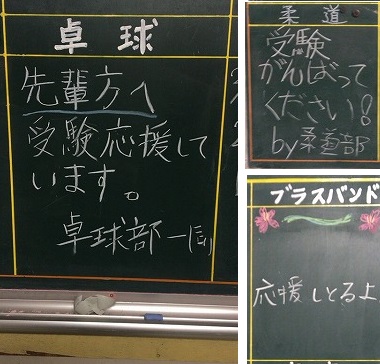 卓球
先輩方へ
受験応援して
います。
卓球部一同
柔道
受験
がんばって
ください!
by柔道部
ブラスバンド
応援しとるよ